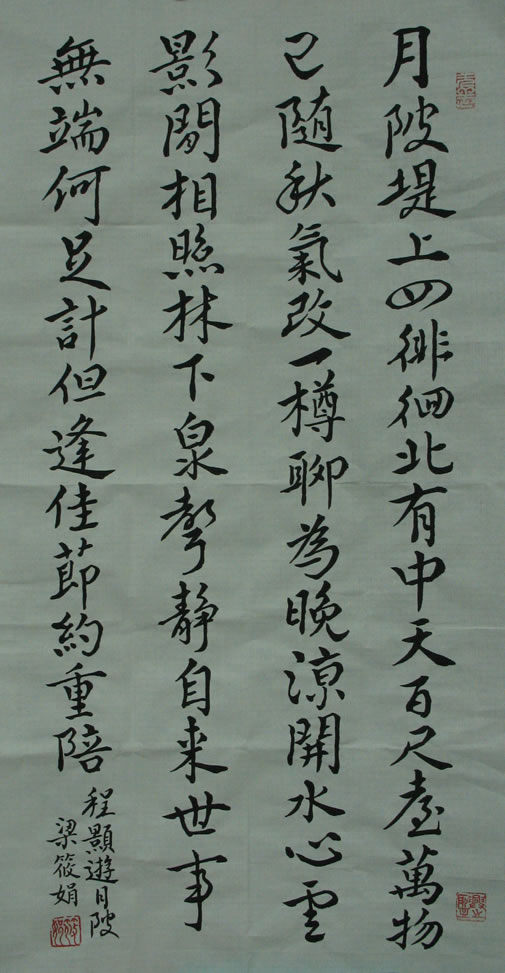 月陂堤上四徘徊北有中天百尺臺萬物
已隨秋氣改一樽聊為晚涼開水心雲
影閒相照林下泉聲靜自來世事
無端何足計但逢佳節約重陪
程顥遊月陂
梁筱娟